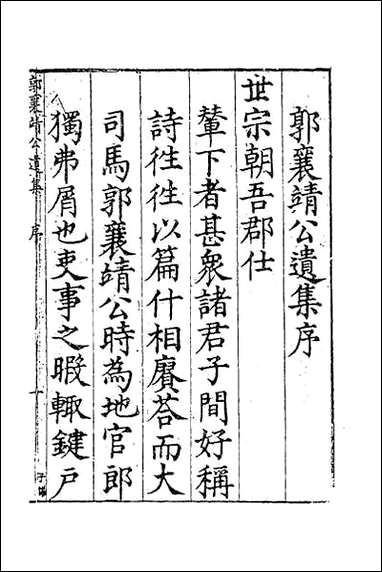 郭襄靖公遺集序
世宗朝吾郡仕
輦下者甚衆諸君子間好稱
詩徃徃以篇什相賡荅而大
司馬郭襄靖公時為地官郎
獨弗屑也吏事之暇輒鍵戸
郭襄靖公遺集
序
一